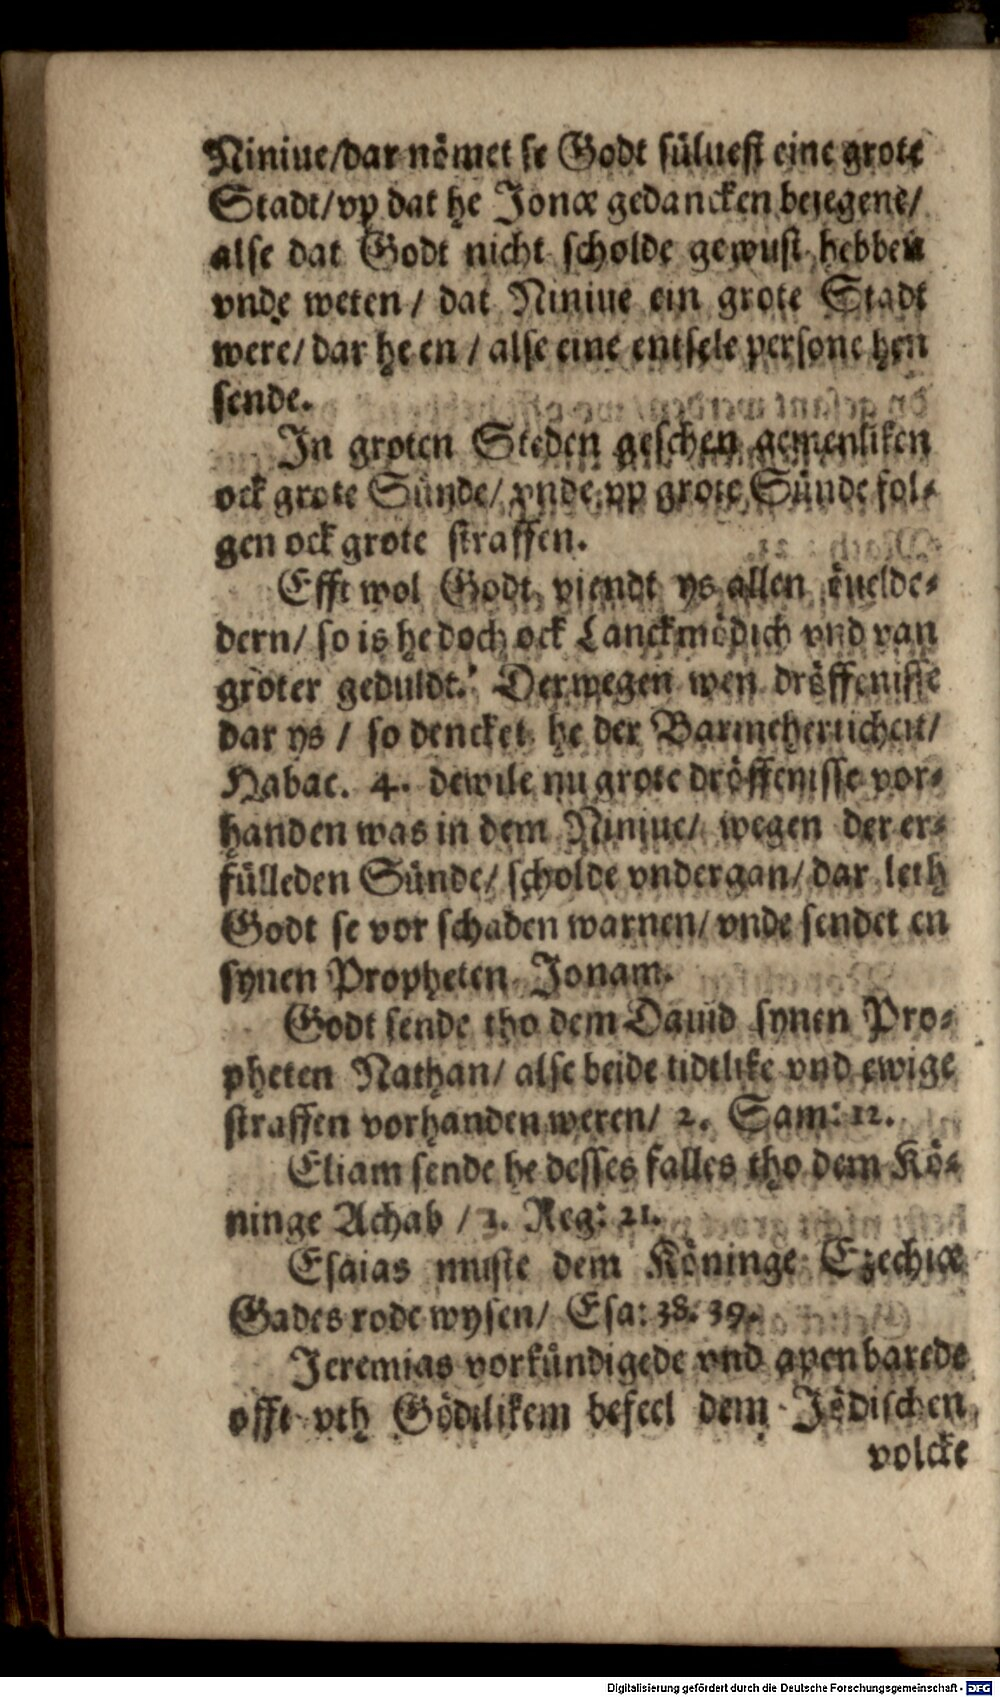 Niniue/dar nömet se Godt süluest eine grote
Stadt/vp dat he Jonæ gedancken bejegene/
alse dat Godt nicht scholde gewust hebben
vnde weten/ dat Niniue ein grote Stadt
were/ dar he en / alse eine entsele persone hen
sende.
In groten Steden geschen gemenliken
ock grote Sünde/ vnde vp grote Sünde fol-
gen ock grote straffen.
Efft wol Godt viendt ys allen öuelde-
dern/ so is he doch ock Lanckmödich vnd van
groter geduldt. Derwegen wen dröffenisse
dar ys / so dencket he der Barmehertichett/
Habac. 4. dewile nu grote dröffenisse vor-
handen was in dem Niniue/ wegen der er-
fülleden Sünde/ scholde vndergan/ dar leth
Godt se vor schaden warnen/ vnde sendet en
synen Propheten Jonam.
Godt sende tho dem Dauid synen Pro-
pheten Nathan/ alse beide tidtlike vnd ewige
straffen vorhanden weren/ 2. Sam: 12.
Eliam sende he desses falles tho dem Kö-
ninge Achab / 3. Reg: 21.
Esaias muste dem Köninge Ezechiæ
Gades rode wysen/ Esa: 38. 39.
Jeremias vorkündigede vnd apenbarede
offt vth Gödtlikem befeel dem Jödischen
volcke
Digitalisierung gefördert durch die Deutsche Forschungsgemeinschaft - DFG